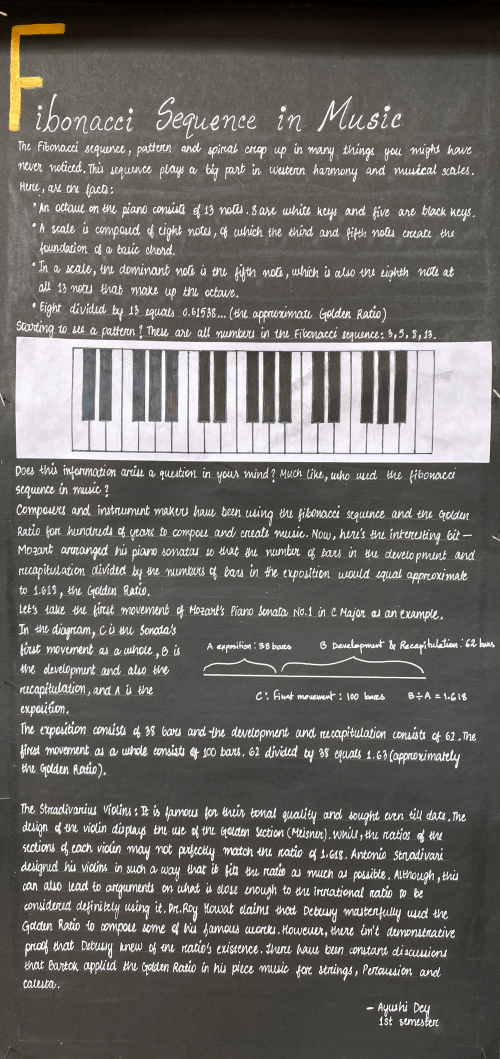 Fibonacci Sequence in Music
The Fibonacci sequence, pattern and spiral crop up in many things you might have
never noticed. This sequence plays a big part in western harmony and musical scales.
Here, are the facts:
• An octave on the piano consists of 13 notes. 8 are white keys and five are black keys.
• A scale is composed of eight notes, of which the third and fifth notes create the
foundation of a basic chord.
• In a scale, the dominant note is the fifth note, which is also the eighth note of
all 13 notes that make up the octave.
• Eight divided by 13 equals 0.61538... (the approximate Golden Ratio)
Starting to see a pattern? These are all numbers in the Fibonacci sequence: 3, 5, 8, 13.
Does this information arise a question in your mind? Much like, who used the fibonacci
sequence in music?
Composers and instrument makers have been using the fibonacci sequence and the Golden
Ratio for hundreds of years to compose and create music. Now, here's the interesting bit –
Mozart arranged his piano sonatas so that the number of bars in the development and
recapitulation divided by the numbers of bars in the exposition would equal approximate
to 1.618, the Golden Ratio.
Let's take the first movement of Mozart's Piano Sonata No.1 in C Major as an example.
In the diagram, C is the Sonata's
first movement as a whole, B is
the development and also the
recapitulation, and A is the
exposition.
A exposition : 38 bars B Development & Recapitulation : 62 bars
C : First movement : 100 bars B÷A = 1.618
The exposition consists of 38 bars and the development and recapitulation consists of 62. The
first movement as a whole consists of 100 bars. 62 divided by 38 equals 1.63 (approximately
the Golden Ratio).
The Stradivarius Violins : It is famous for their tonal quality and sought even till date. The
design of the violin displays the use of the Golden Section (Meisner). While, the ratios of the
sections of each violin may not perfectly match the ratio of 1.618. Antonio Stradivari
designed his violins in such a way that it fits the ratio as much as possible. Although, this
can also lead to arguments on what is close enough to the irrational ratio to be
considered definitely using it. Dr. Roy Howat claims that Debussy masterfully used the
Golden Ratio to compose some of his famous works. However, there isn't demonstrative
proof that Debussy knew of the ratio's existence. There have been constant discussions
that Bartok applied the Golden Ratio in his piece music for strings, Percussion and
calesta.
– Ayushi Dey
1st semester